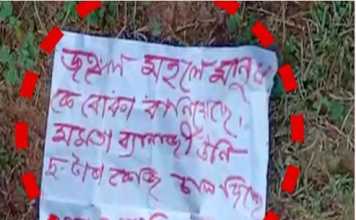 জঙ্গল মহলে মানুষ
কে বোকা বানিয়েছে,
মমতা ব্যানার্জী উনি
দু-টাকা কেজি চাল দিচ্ছে